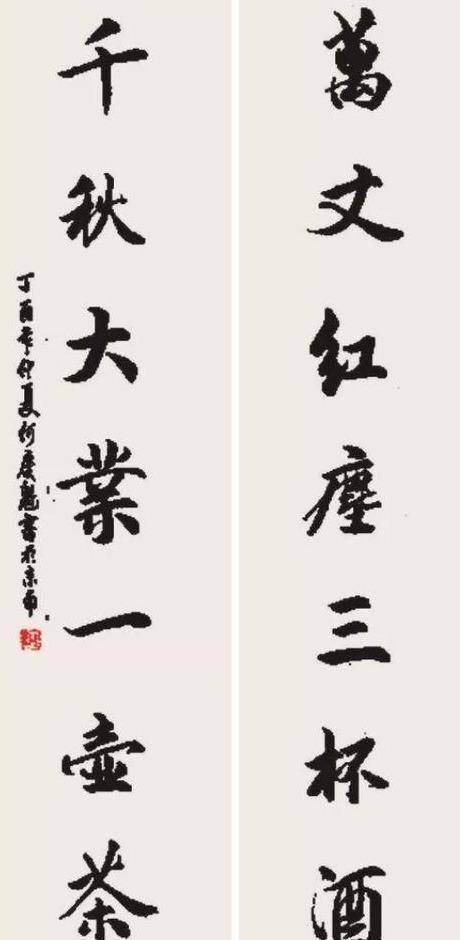 萬丈紅塵三杯酒
千秋大業一壺茶
丁酉年仲夏何慶魁書於京南